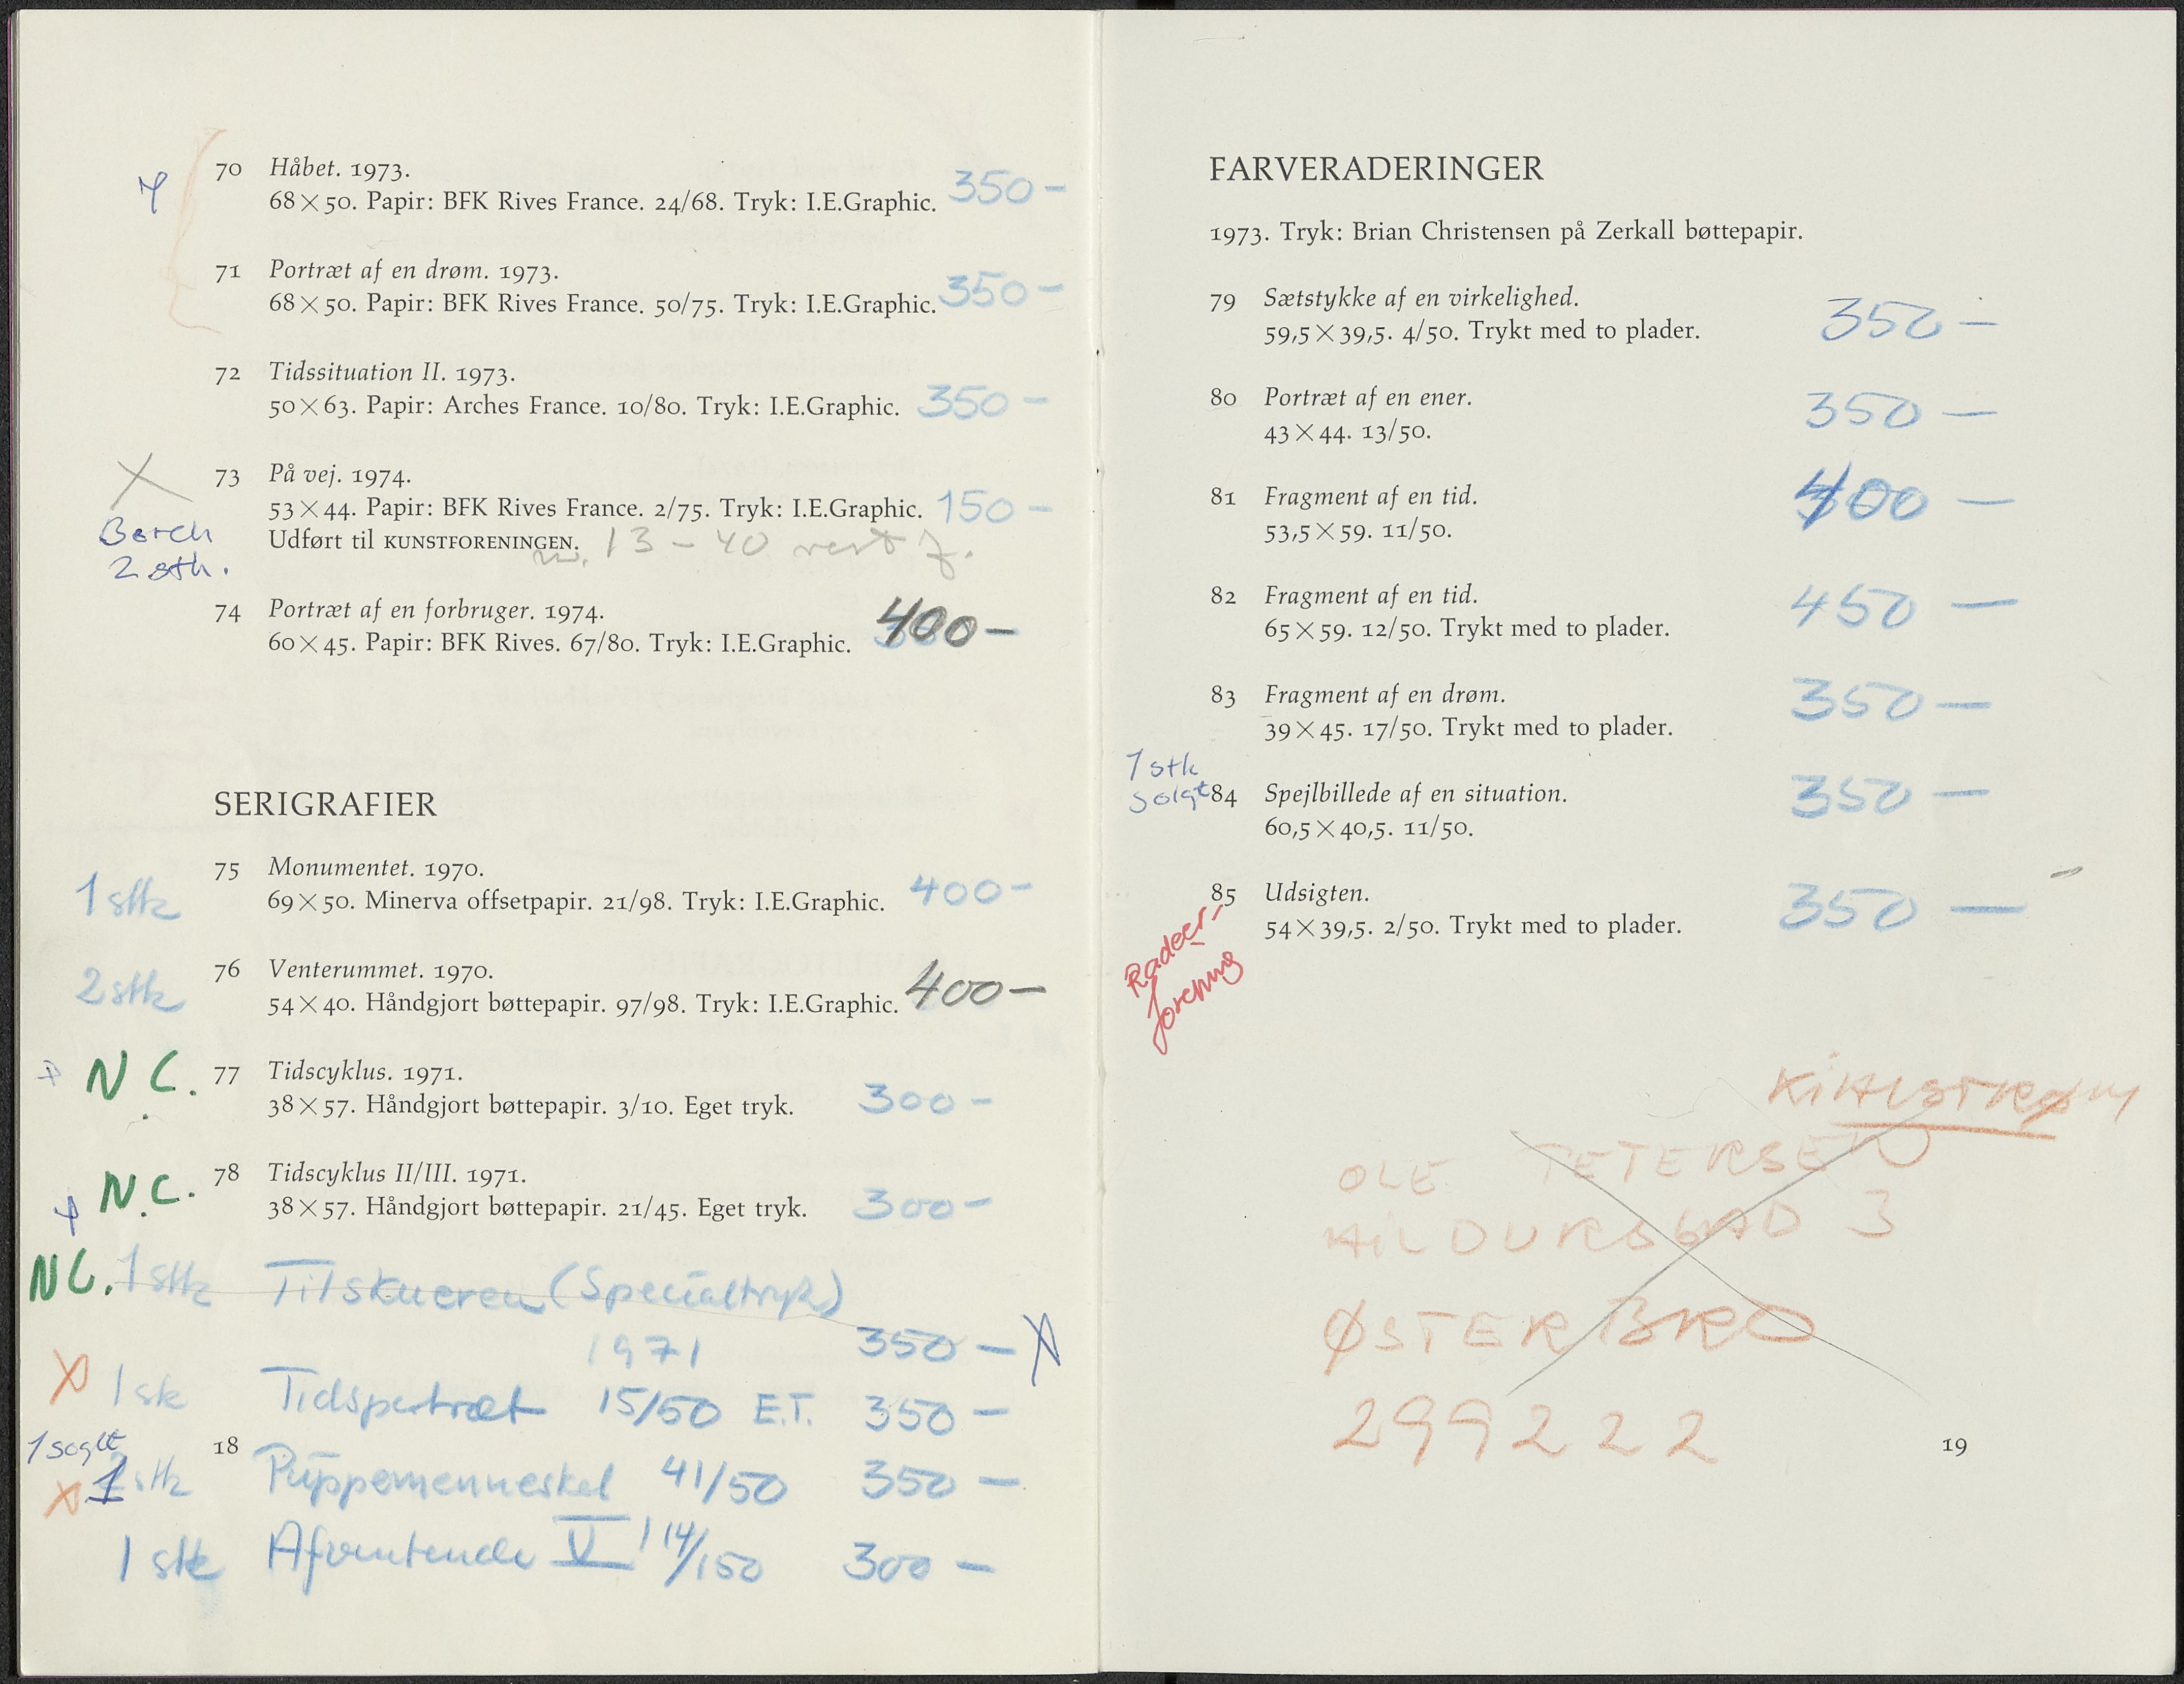 70 Håbet. 1973.
68×50. Papir: BFK Rives France. 24/68. Tryk: I.E.Graphic. 350-
71 Portræt af en drøm. 1973.
68×50. Papir: BFK Rives France. 50/75. Tryk: I.E.Graphic. 350-
72 Tidssituation II. 1973.
50×63. Papir: Arches France. 10/80. Tryk: I.E.Graphic. 350-
X 73 På vej. 1974.
53×44. Papir: BFK Rives France. 2/75. Tryk: I.E.Graphic. 150-
Borch Udført til KUNSTFORENINGEN. 13-40
2 stk.
74 Portræt af en forbruger. 1974.
60×45. Papir: BFK Rives. 67/80. Tryk: I.E.Graphic. 400-
SERIGRAFIER
75 Monumentet. 1970.
1 stk 69×50. Minerva offsetpapir. 21/98. Tryk: I.E.Graphic. 400-
76 Venterummet. 1970.
2 stk 54×40. Håndgjort bøttepapir. 97/98. Tryk: I.E.Graphic. 400-
N C. 77 Tidscyklus. 1971.
38×57. Håndgjort bøttepapir. 3/10. Eget tryk. 300-
N.C. 78 Tidscyklus II/III. 1971.
38×57. Håndgjort bøttepapir. 21/45. Eget tryk. 300-
NC. 1 stk Tilskueren (Specialtryk)
1971 350-
X 1 sk Tidsportræt 15/50 E.T. 350-
1 soglt
18
X 1 stk Puppemennesket 41/50 350-
1 stk Afventende V 114/150 300-
FARVERADERINGER
1973. Tryk: Brian Christensen på Zerkall bøttepapir.
79 Sætstykke af en virkelighed.
59,5×39,5. 4/50. Trykt med to plader. 350-
80 Portræt af en ener.
43×44. 13/50. 350-
81 Fragment af en tid. 400-
53,5×59. 11/50.
82 Fragment af en tid. 450-
65×59. 12/50. Trykt med to plader.
83 Fragment af en drøm. 350-
39×45. 17/50. Trykt med to plader.
1 stk
solgt 84 Spejlbillede af en situation. 350-
60,5×40,5. 11/50.
85 Udsigten. 350-
54×39,5. 2/50. Trykt med to plader.
Radeer-
forening
OLE PETERSEN
ØSTERBRO
299222
19